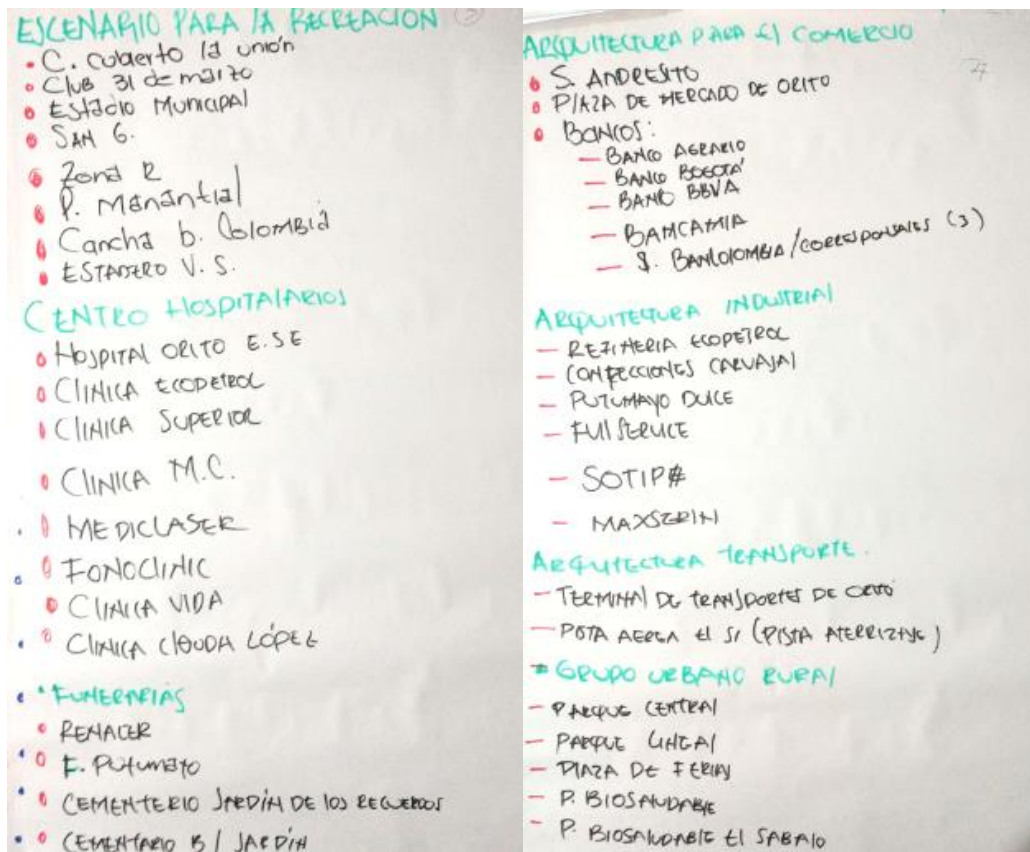 ESCENARIO PARA LA RECREACIÓN
C. cubierto la unión
Club 31 de marzo
Estadio Municipal
SAN G.
Zona R
P. Manantial
Cancha b. Colombia
ESTADERO V. S.
CENTRO HOSPITALARIOS
HOSPITAL ORITO E.S.E
CLINICA ECOPETROL
CLINICA SUPERIOR
CLINICA M.C.
MEDICLASER
FONOCLINIC
CLINICA VIDA
CLINICA CLAUDA LÓPEZ
FUNERARIAS
RENACER
F. Putumayo
CEMENTERIO JARDÍN DE LOS RECUERDOS
CEMENTARIO B/ JARDÍN
ARQUITECTURA PARA El COMERCIO
S. ANDRESITO
PLAZA DE MERCADO DE ORITO
BANCOS:
— BANCO AGRARIO
— BANCO BOGOTÁ
— BANCO BBVA
— BANCAMIA
— S. BANCOLOMBIA/CORRESPONSALES (3)
ARQUITECTURA INDUSTRIAL
— REFINERIA ECOPETROL
— CONFECCIONES CARVAJAL
— PUTUMAYO DULCE
— FULL SERVICE
— SOTIP
— MAXSERIN
ARQUITECTURA TRANSPORTE.
— TERMINAL DE TRANSPORTES DE ORITO
— AEREA (PISTA ATERRIZAJE)
GRUPO URBANO RURAL
— PARQUE CENTRAL
— PARQUE LINEAL
— PLAZA DE FERIAS
— P. BIOSALUDABLE
— P. BIOSALUDABLE El SABALO